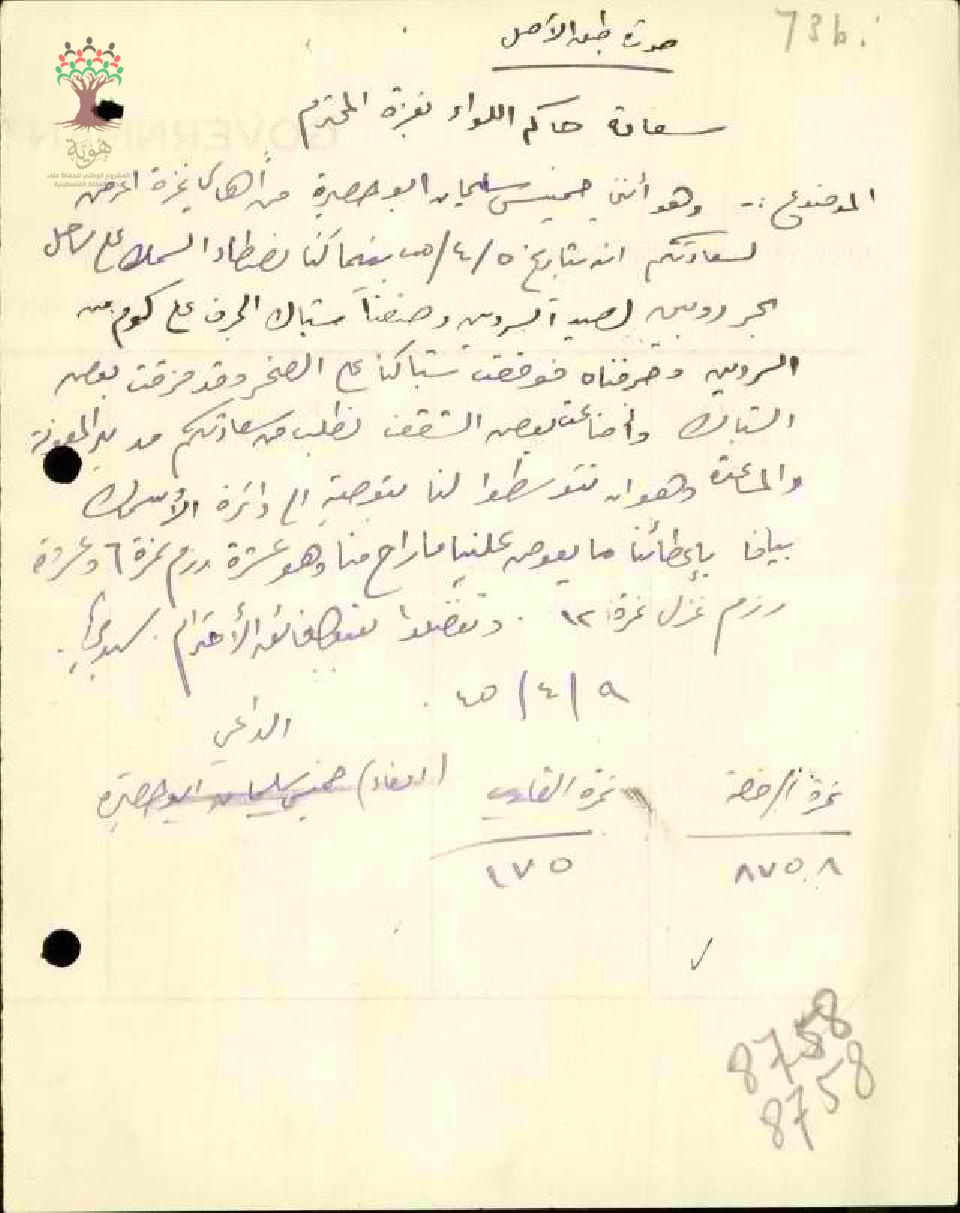 73b.
صورة طبق الأصل
سعادة حاكم اللواء بغزة المحترم
هوية
الموضوع :- وهو أنني خميس سليمان ابو حصيرة من أهالي غزة اعرض
لسعادتكم انه بتاريخ ٥/٤/ بينما كنا نصطاد السمك على ساحل
بحر روبين لصيد السردين وضعنا شباك الجرف على كوم من
السردين وجرفناه فوقعت شباكنا على الصخر وقد مزقت بعض
الشباك وضاعت بعض الشقف نطلب من سعادتكم مد يد المعونة
والمساعدة وهو ان تتوسطوا لنا بتوصية الى دائرة الأسماك
بيافا بإعطائنا ما يعوض علينا ما راح منا وهو عشرة رزم نمرة ٦ وعشرة
رزم غزل نمرة ١٢ . وتفضلوا بقبول فائق الأحترام سيدي .
٩/٤/٤٥ .
الداعي
(امضاء) خميس سليمان ابو حصيرة
نمرة الرخصة
٨٧٥٨
نمرة القارب
١٧٥
8758
8758